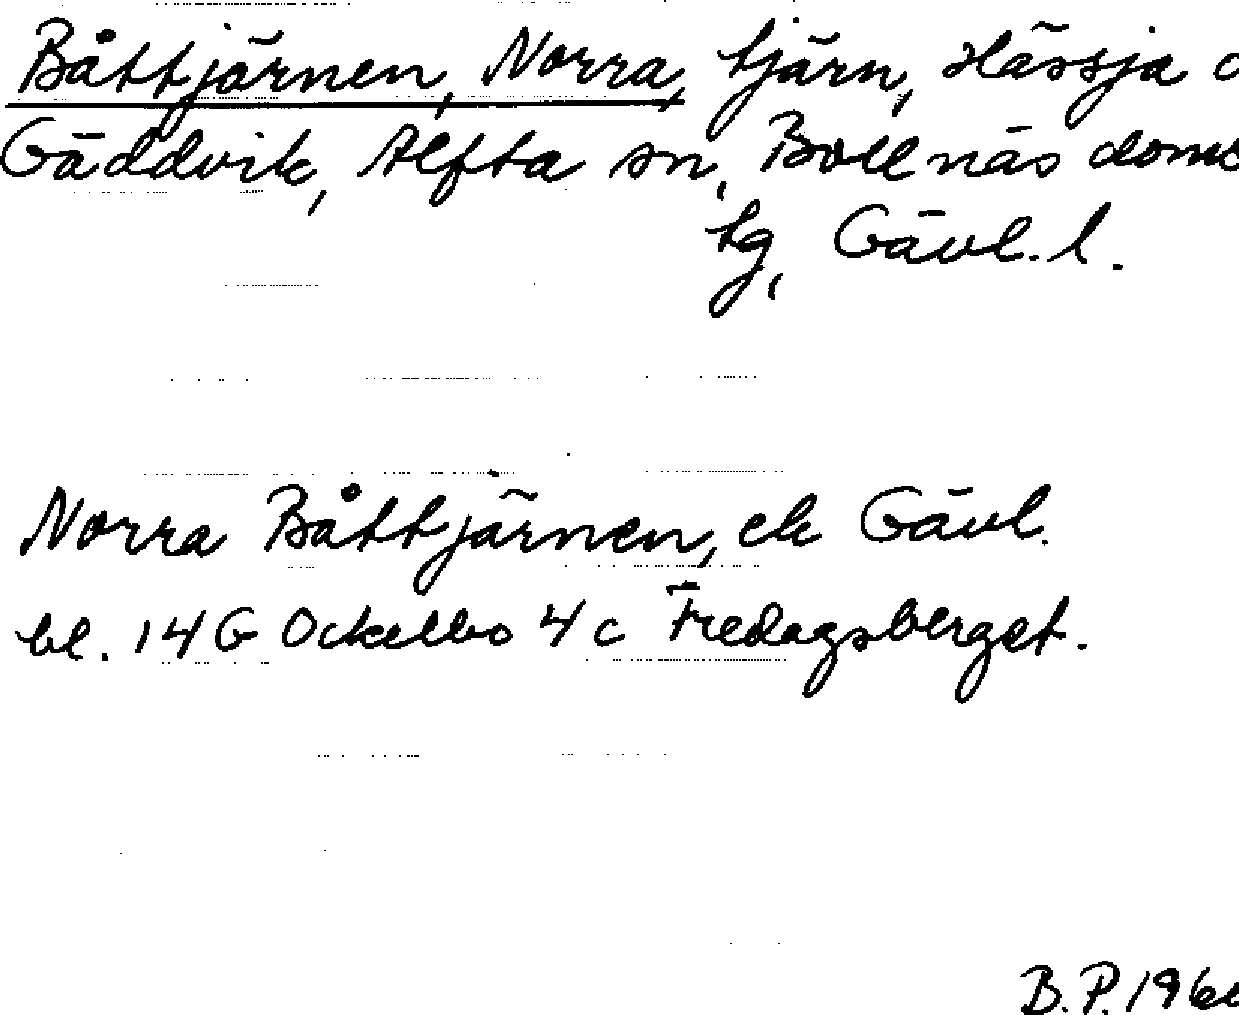 Båttjärnen, Norra, tjärn, Hässja o
Gäddvik, Alfta sn, Bollnäs doms
tg, Gävl. l.
Norra Båttjärnen, ek Gävl.
bl. 14 G Ockelbo 4 c Fredagsberget.
B. P. 196